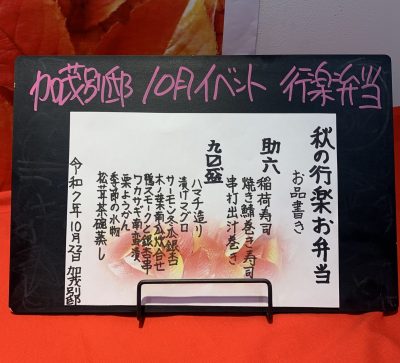 加茂別邸 10月イベント 行楽弁当
秋の行楽お弁当
お品書き
助六
稲荷寿司
焼き鯖巻き寿司
串打出汁巻き
九〇盛
ハマチ造り
漬けマグロ
サーモン冬瓜銀杏
木ノ葉南瓜炊合せ
ワカサギ南蛮漬
鴨スモークと銀杏串
栗ようかん
季節の水物
松茸茶碗蒸し
令和7年10月22日 加茂別邸